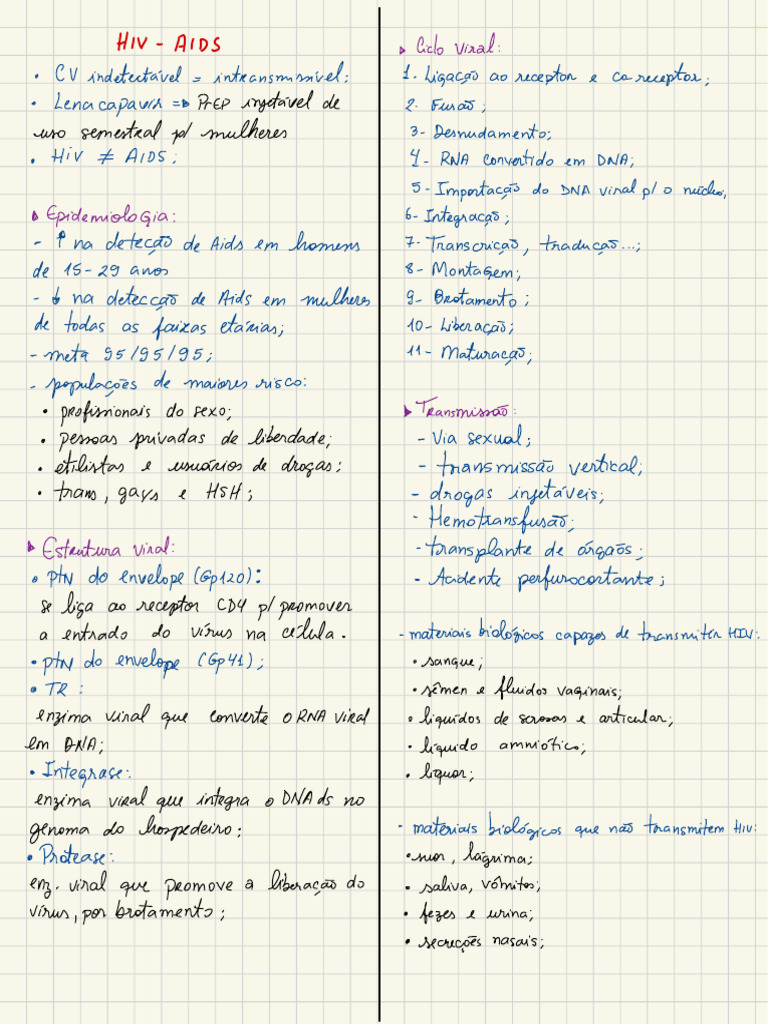 HIV - AIDS
• CV indetectável = intransmissível;
• Lenacapavir => PrEP injetável de
uso semestral p/ mulheres
• HIV ≠ AIDS;
▸ Epidemiologia:
- ↑ na deteção de Aids em homens
de 15-29 anos
- ↓ na detecção de Aids em mulheres
de todas as faixas etárias;
- meta 95/95/95;
- populações de maiores risco:
• profissionais do sexo;
• pessoas privadas de liberdade;
• etilistas e usuários de drogas;
• trans, gays e HSH;
▸ Estrutura viral:
• PTN do envelope (Gp120):
se liga ao receptor CD4 p/ promover
a entrada do vírus na célula.
• PTN do envelope (Gp41);
• TR:
enzima viral que converte o RNA viral
em DNA;
• Integrase:
enzima viral que integra o DNAds no
genoma do hospedeiro;
• Protease:
enz. viral que promove a liberação do
vírus, por brotamento;
▸ Ciclo Viral:
1. Ligação ao receptor e co receptor;
2. Fusão;
3- Desnudamento;
4- RNA convertido em DNA;
5- Importação do DNA viral p/ o núcleo,
6- Integração;
7- Transcrição, tradução...;
8- Montagem;
9- Brotamento;
10- Liberação;
11- Maturação;
▸ Transmissão:
- Via sexual;
- transmissão vertical;
- drogas injetáveis;
- Hemotransfusão;
- transplante de órgãos;
- Acidente perfurocortante;
- materiais biológicos capazes de transmitir HIV:
• sangue;
• sêmen e fluidos vaginais;
• líquidos de serosas e articular;
• líquido amniótico;
• liquor;
- materiais biológicos que não transmitem HIV:
• suor, lágrima;
• saliva, vômitos;
• fezes e urina;
• secreções nasais;